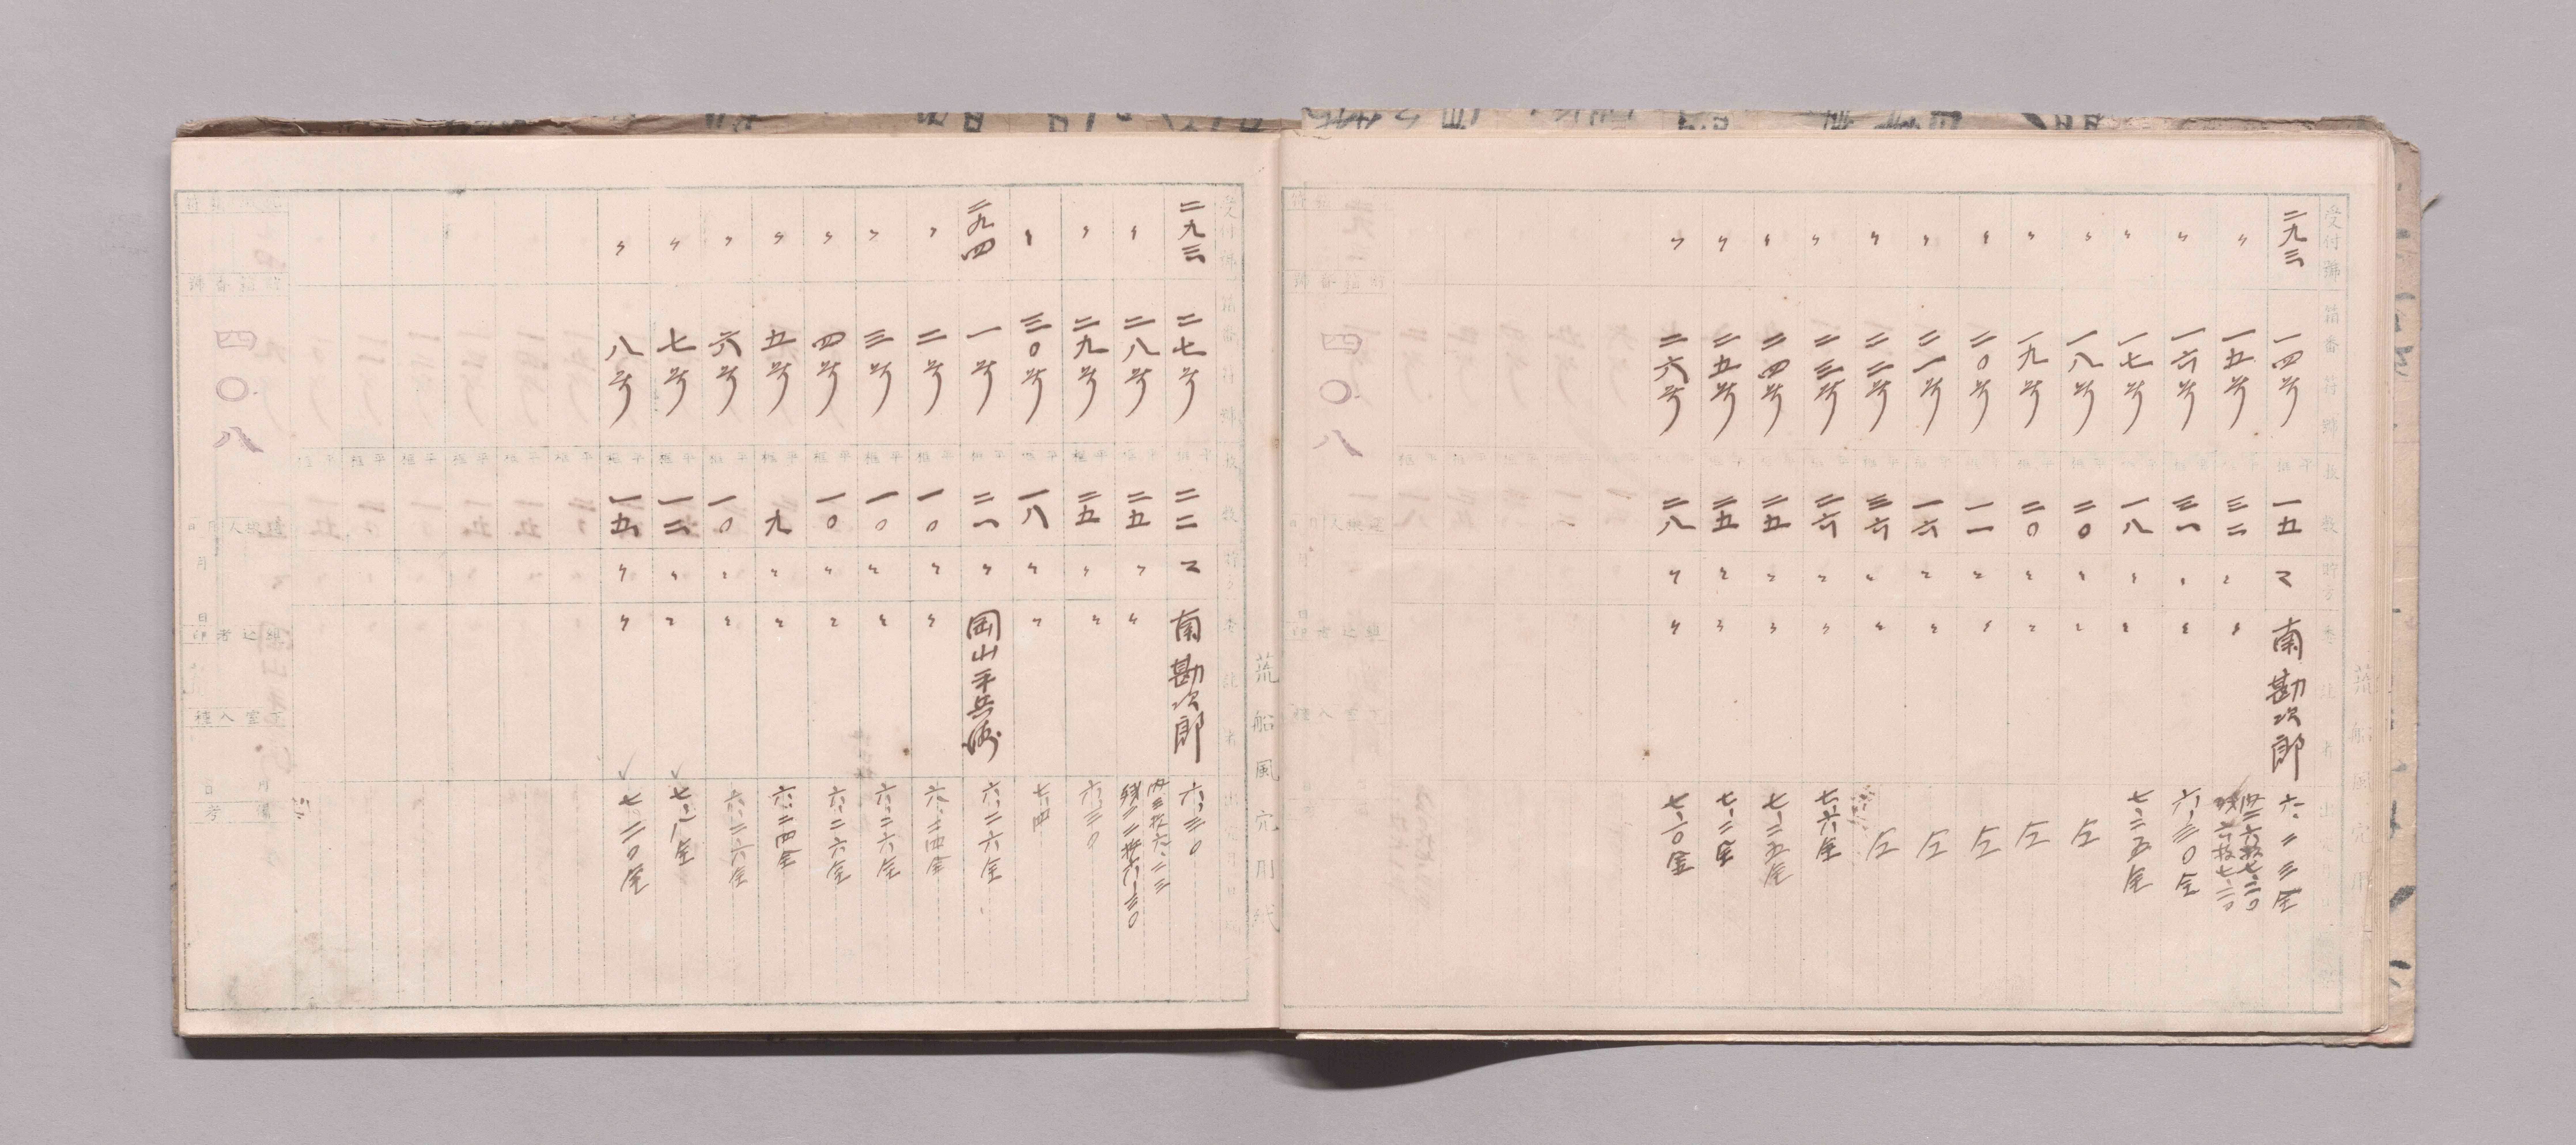 受付號
箱番符號
枚數
二九三 一四号 一五 マ 南勘次郎 六、二三全
〃 一五号 三二 〃 〃
〃 一六号 三一 〃 〃 六、三〇全
〃 一七号 一八 〃 〃 七、二五全
〃 一八号 二〇 〃 〃
〃 一九号 二〇 〃 〃
〃 二〇号 一一 〃 〃
〃 二一号 一六 〃 〃
〃 二二号 三六 〃 〃
〃 二三号 二六 〃 〃 七、六全
〃 二四号 二五 〃 〃 七、二五全
〃 二五号 二五 〃 〃 七、二全
〃 二六号 二八 〃 〃 七、一〇全
四〇八
荒船風穴用紙
受付號
箱番符號
枚數
二九三 二七号 二二 マ 南勘次郎 六、三〇
〃 二八号 二五 〃 〃 内三枚六、二三
残り二二枚六、三〇
〃 二九号 二五 〃 〃 六、三〇
〃 三〇号 一八 〃 〃 七、四
二九四 一号 二一 〃 岡山平兵衛 六、二六全
〃 二号 一〇 〃 〃 六、二四全
〃 三号 一〇 〃 〃 六、二六全
〃 四号 一〇 〃 〃 六、二六全
〃 五号 九 〃 〃 六、二四全
〃 六号 一〇 〃 〃 六、二六全
〃 七号 一二 〃 〃 七、一八全
〃 八号 一五 〃 〃 七、二〇全
四〇八